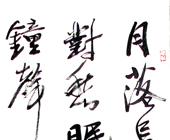 月落烏
對愁眠
鐘聲